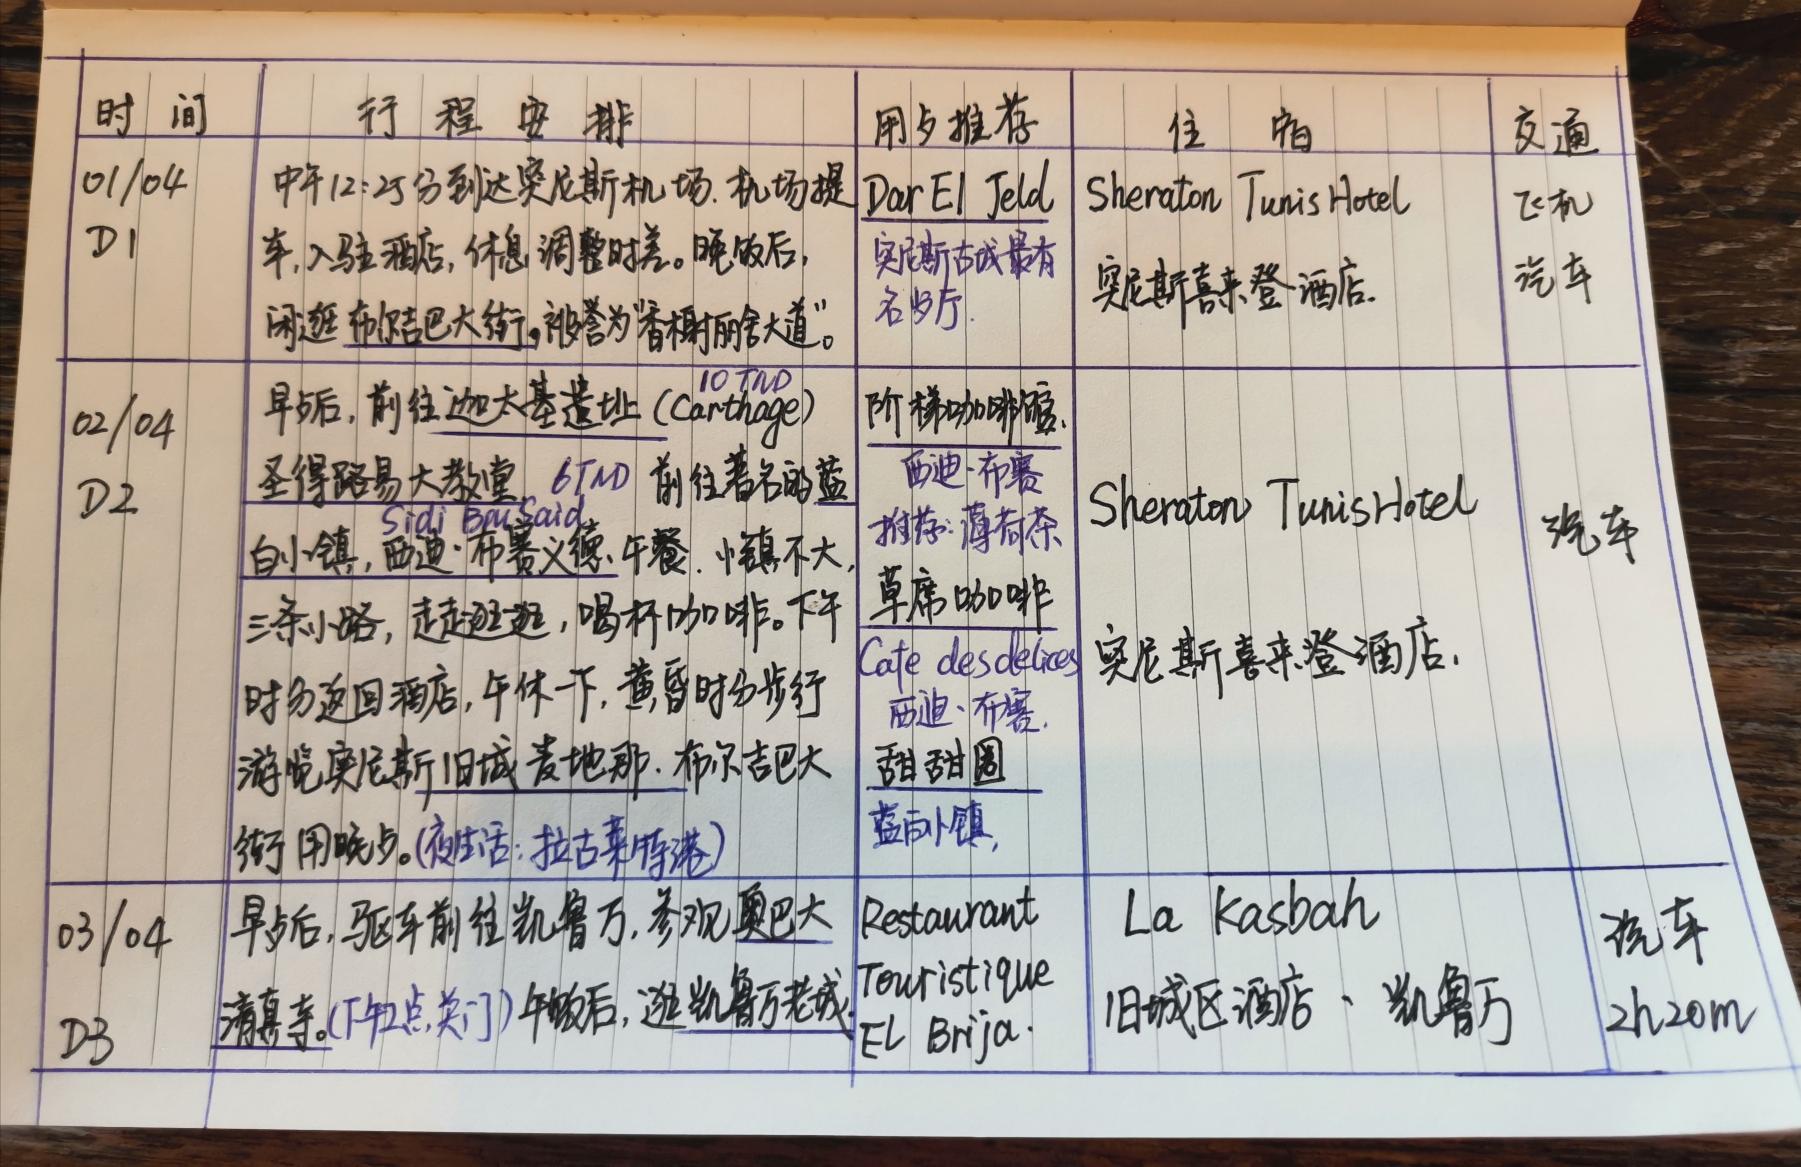 时间 行程安排 用歺推荐 住宿 交通
01/04
D1
中午12:25分到达突尼斯机场.机场提
车,入驻酒店,休息调整时差。晚饭后,
闲逛布尔吉巴大街,被誉为"香榭丽舍大道"。
Dar El Jeld
突尼斯古城最有
名歺厅.
Sheraton Tunis Hotel
突尼斯喜来登酒店.
飞机
汽车
02/04
D2
10 TND
早歺后,前往迦太基遗址(Carthage)
圣得路易大教堂 6TND 前往著名的蓝
Sidi Bou Said
白小镇,西迪·布赛义德.午餐.小镇不大,
三条小路,走走逛逛,喝杯咖啡。下午
时分返回酒店,午休一下,黄昏时分步行
游览突尼斯旧城麦地那.布尔吉巴大
街用晚歺。(夜生活:拉古莱特港)
阶梯咖啡馆.
西迪·布赛
推荐:薄荷茶
草席咖啡
Cafe des delices
西迪·布赛.
甜甜圈
蓝白小镇,
Sheraton Tunis Hotel
突尼斯喜来登酒店.
汽车
03/04
D3
早歺后,驱车前往凯鲁万,参观奥巴大
清真寺。(下午2点关门)午饭后,逛凯鲁万老城.
Restaurant
Touristique
EL Brija.
La Kasbah
旧城区酒店、凯鲁万
汽车
2h20m